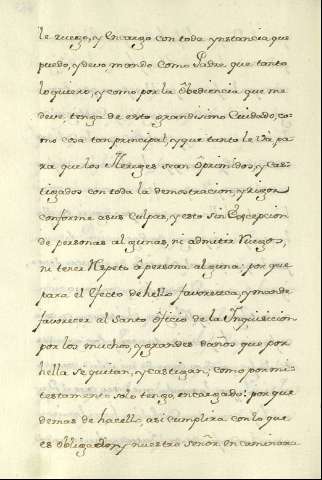 le ruego, y Encargo con toda ynstancia que
puedo, y devo, mando como Padre que tanto
lo quiero, y como por la Obediencia que me
deve, tenga de esto grandisimo Cuidado, co-
mo cosa tan principal, y que tanto le vá pa-
ra que los Hereges sean oprimidos, y cas-
tigados con toda la demostracion, y rigor
conforme a sus Culpas, y esto sin Excepcion
de personas algunas, ni admitir Ruegos,
ni tener Respeto á persona alguna: por que
para el Efecto de hello favorezca, y mande
favorecer al Santo Oficio de la Inquisicion
por los muchos, y grandes daños que por
hella se quitan, y castigan, como por mi
testamento solo tengo, encargado: por que
demas de hacello, asi cumplira con lo que
es obligado, y nuestro Señor encaminara